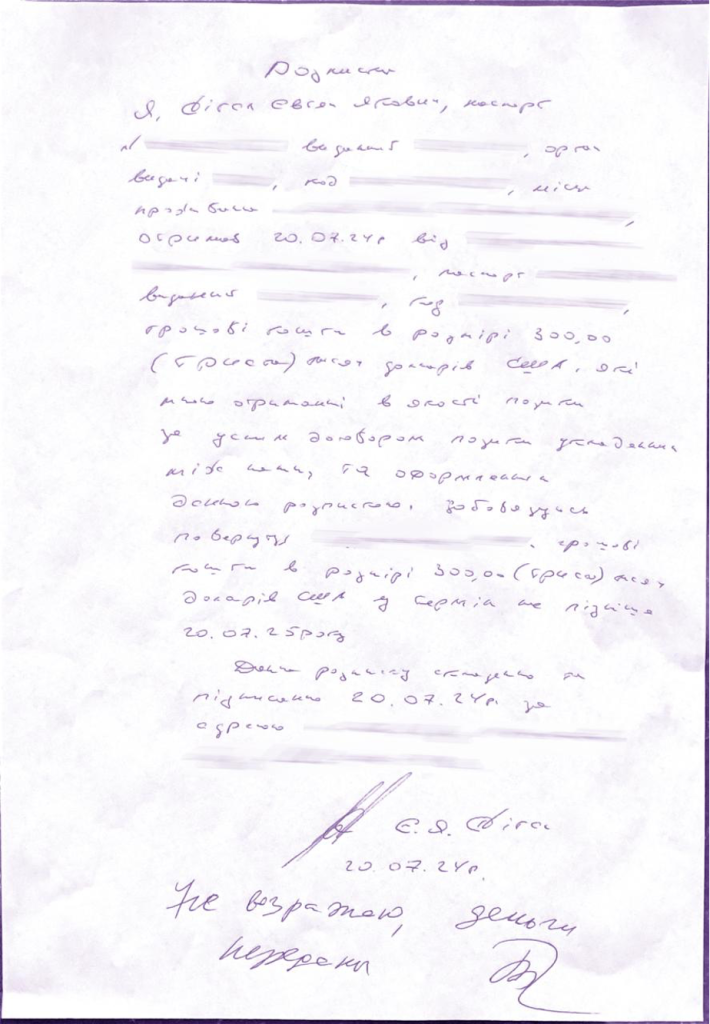 Розписка
Я, Фіган Євген Якович, паспорт
№ виданий , орган
видачі , код , місце
проживання ,
отримав 20.07.24р від
, паспорт
виданий , код ,
грошові кошти в розмірі 300,00
(триста) тисяч доларів США, які
мною отриманні в якості позики
за усним договором позики укладеним
між нами, та оформленим
даною розпискою. Зобовязуюсь
повернути грошові
кошти в розмірі 300,00 (триста) тисяч
доларів США у термін не пізніше
20.07.25року
Дану розписку складено та
підписанно 20.07.24р. за
адресою
Є.Я.
20.07.24р.
Не возражаю, деньги
переданы